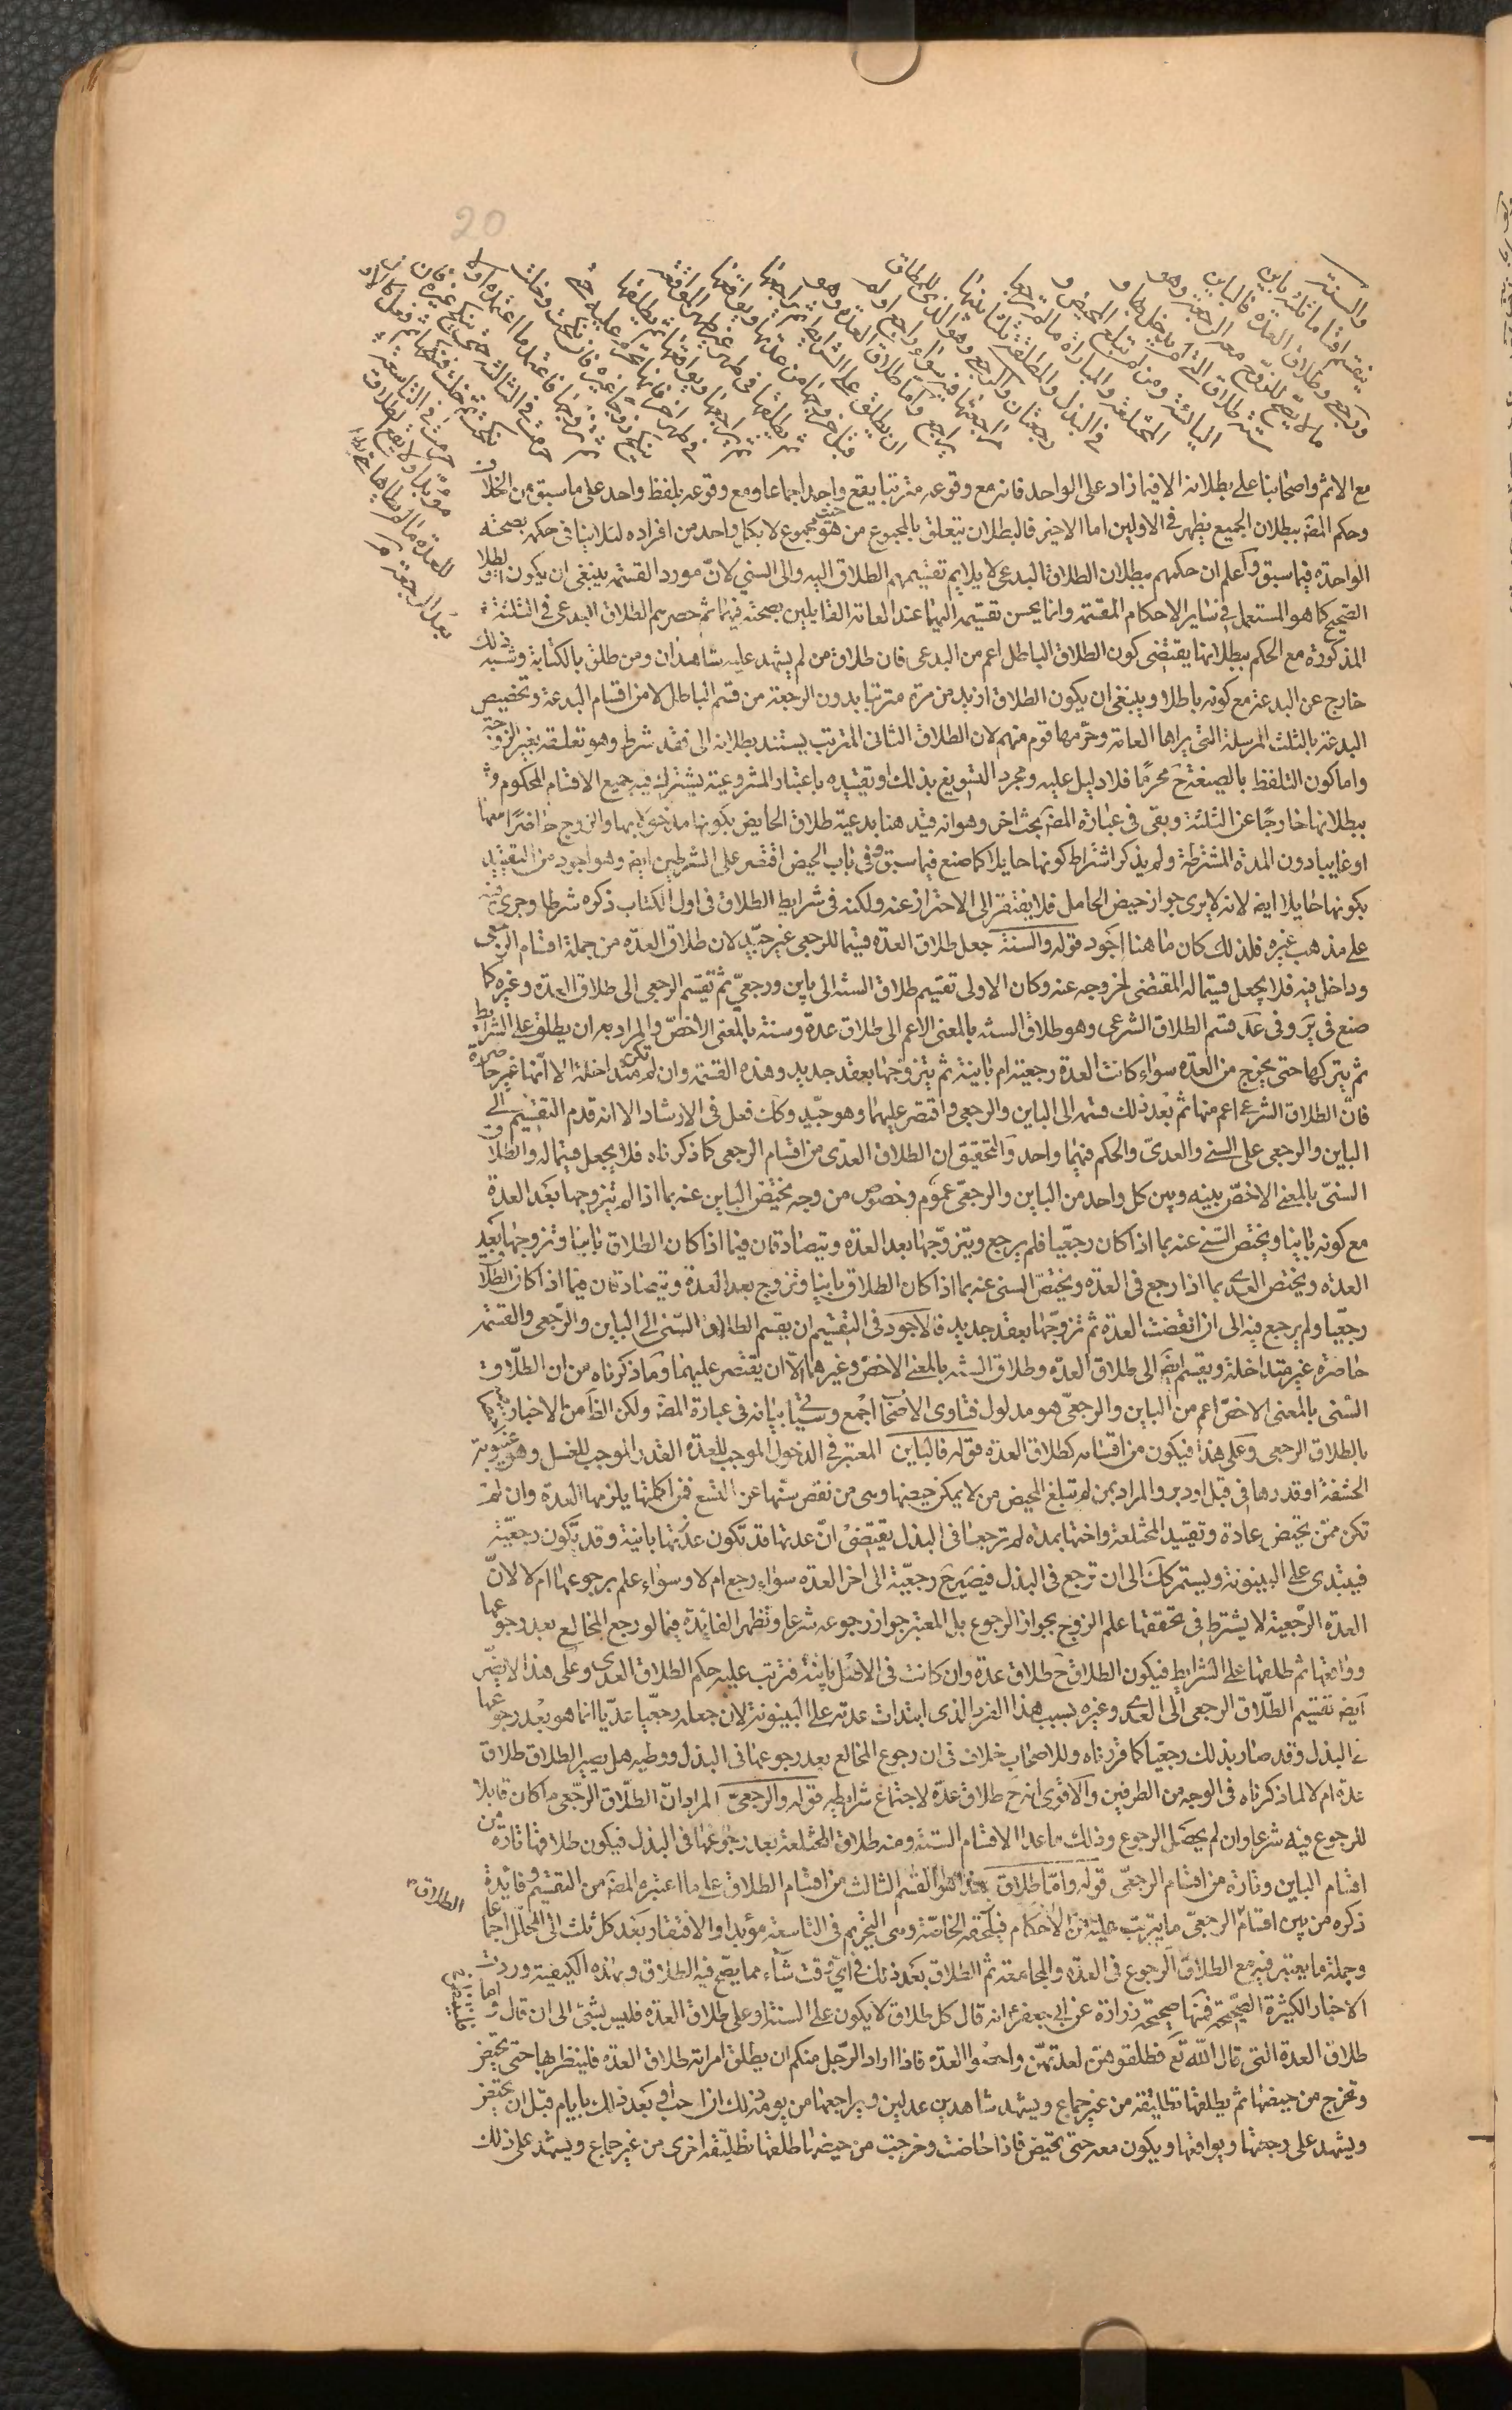 20
والسنة
تنقسم اقساما ثلثه باين
ورجعي وطلاق العدة فالباين
ما لا يصح للزوج معه الرجعة وهو
ستة طلاق التي لم يدخل بها و
اليائسة ومن لم تبلغ المحيض و
المختلعة والمباراة ما لم ترجعا
في البذل والمطلقة ثلثا بينها
رجعتان والرجعي هو الذي للمطلق
مراجعتها فيه سواء راجع او لم
يراجع واما طلاق العدة فهو
ان يطلق على الشرايط ثم يراجعها
قبل خروجها من عدتها ويواقعها
ثم يطلقها في طهر غير طهر المواقعة
ثم يراجعها ويواقعها ثم يطلقها
في طهر اخر فانها تحرم عليه حتى
تنكح زوجا غيره فان نكحت وخلت
ثم تزوجها فاعتمد ما اعتمده اولا
حرمت في الثالثة حتى تنكح غيره فان
نكحت ثم خلت فنكحها ثم فعل كالاول
حرمت في التاسعة
مؤبدا ولا يقع الطلاق
للعدة ما لم يطاها
بعد المراجعة
مع الاثم واصحابنا على بطلانه الا فيما زاد على الواحد فانه مع وقوعه مترتبا يقع واحد اجماعا ومع وقوعه بلفظ واحد على ما سبق من الخلاف
وحكم المصَ ببطلان الجميع يظهر في الاولين اما الاخير فالبطلان يتعلق بالمجموع من حيث هو مجموع لا بكل واحد من افراده لئلا ينافي حكمه بصحته
الواحدة فيما سبق واعلم ان حكمهم ببطلان الطلاق البدعي لا يلايم تقسيمهم الطلاق اليه والى السني لانّ مورد القسمة ينبغي ان يكون الطلاق
الصحيح كما هو المستعمل في ساير الاحكام المقسمة وانما يحسن تقسيمه اليهما عند العامة القايلين بصحته فيهما ثم حصرهم الطلاق البدعي في الثلثة
المذكورة مع الحكم ببطلانها يقتضى كون الطلاق الباطل اعم من البدعى فان طلاق من لم يشهد عليه شاهدان ومن طلق بالكتابة وشبه ذلك
خارج عن البدعة مع كونه باطلا وينبغى ان يكون الطلاق ازيد من مرة مترتبا بدون الرجعة من قسم الباطل لا من اقسام البدعة وتخصيص
البدعة بالثلث المرسلة التي يراها العامة وحرّمها قوم منهم لان الطلاق الثاني المترتب يستند بطلانه الى فقد شرط وهو تعلقه بغير الزوجة
واما كون التلفظ بالصيغة حَ محرمًا فلا دليل عليه ومجرد التسويغ بذلك او تقييده باعتبار المشروعية يشترك فيه جميع الاقسام المحكوم
ببطلانها خارجًا عن الثلثة وبقى فى عبارة المصَ بحث اخر وهو انه قيد هنا بدعية طلاق الحايض بكونها مدخولا بها والزوج حاضرًا معها
او غايبا دون المدة المشترطة ولم يذكر اشتراط كونها حايلا كما صنع فيما سبق وفى باب الحيض اقتصر على الشرطين ايضَ وهو اجود من التقييد
بكونها حايلا ايضَ لانه لا يرى جواز حيض الحامل فلا يفتقر الى الاحتراز عنه ولكنه فى شرايط الطلاق فى اول الكتاب ذكره شرطا وجرى فيه
على مذهب غيره فلذلك كان ما هنا اجود قوله والسنة جعل طلاق العدة قسيما للرجعى غير جيّد لان طلاق العدّه من جملة اقسام الرجعى
وداخل فيه فلا يجعل قسيما له المقتضى لخروجه عنه وكان الاولى تقسيم طلاق السنه الى باين ورجعيّ ثم تقسيم الرجعى الى طلاق العدة وغيره كما
صنع فى يَر وفى عَد قسم الطلاق الشرعى وهو طلاق السنه بالمعنى الاعم الى طلاق عدة وسنة بالمعنى الاخصّ والمراد به ان يطلق على الشرايط
ثم يتركها حتى يخرج من العدّه سواء كانت العدة رجعية ام باينة ثم يتزوجها بعقد جديد وهذه القسمة وان لم تكن متداخلة الا انّها غير حاصرة
فانّ الطلاق الشرعي اعم منها ثم بعد ذلك قسمه الى الباين والرجعى واقتصر عليهما وهو جيّد وكك فعل فى الارشاد الا انه قدم التقسيم الى
الباين والرجعى على السنى والعدىّ والحكم فيهما واحد والتحقيق ان الطلاق العدّى من اقسام الرجعى كما ذكرناه فلا يجعل قسيما له والطلاق
السنىّ بالمعنى الاخصّ بينه وبين كل واحد من الباين والرجعىّ عموم وخصوص من وجه يختص الباين عنه بما اذا لم يتزوجها بعد العدة
مع كونه باينا ويختص السني عنه بما اذا كان رجعّيا فلم يرجع ويتزوّجها بعد العدّه ويتصادقان فيما اذا كان الطلاق باينا وتزوجها بعد
العدّه ويختص العدى بما اذا رجع فى العدّه ويختصّ السنى عنه بما اذا كان الطلاق باينا وتزوج بعد العدة ويتصادقان فيما اذا كان الطلاق
رجعّيا ولم يرجع فيه الى ان انقضت العدّة ثم تزوجها بعقد جديد فالاجود فى التقسيم ان يقسم الطلاق السنى الى الباين والرّجعى والقسمة
حاصرة غير متداخلة ويقسم ايضَ الى طلاق العدّه وطلاق السنه بالمعنى الاخص وغيرهما الا ان يقتصر عليهما وما ذكرناه من ان الطلاق
السّنى بالمعنى الاخصّ اعم من الباين والرجعىّ هو مدلول فتاوى الاصحاب اجمع وسياتى بيانه فى عبارة المصَ ولكن الظاَ من الاخبار
بالطلاق الرجعى وعلى هذا فيكون من اقسامه كطلاق العدة قوله فالباين المعتبر فى الدخول الموجب للعدة القدر الموجب للغسل وهو غيبوبة
الحشفة او قدرها فى قبل او دبر والمراد بمن لم تبلغ المحيض من لا يمكن حيضها وهى من نقص سنها عن التسع فمن اكملتها يلزمها العدة وان لم
تكن ممن تحيض عادة وتقييد المختلعة واختها بمدة لم ترجعا فى البذل يقتضى انّ عدتها قد تكون عدّتها باينة وقد تكون رجعيّة
فيبتدى على البينونة ويستمر كك الى ان ترجع فى البذل فيصير حَ رجعيّة الى اخر العدة سواء رجع ام لا وسواء علم برجوعها ام لا لانّ
العدة الرّجعية لا يشترط فى تحققها علم الزوج بجواز الرجوع بل المعتبر جواز رجوعه شرعا وتظهر الفايدة فيما لو رجع المخالع بعد رجوعها
وواقعها ثم طلقها على الشرايط فيكون الطلاق حَ طلاق عدة وان كانت فى الاصل باينة فترتب عليه حكم الطلاق العدى وعلى هذا لا يضرّ
ايضَ تقسيم الطّلاق الرجعى الى العدى وغيره بسبب هذا الفرد الذى ابتدات عدته على البينونة لان جعله رجعيّا عدّيا انما هو بعد رجوعها
في البذل وقد صار بذلك رجعيا كما قررناه وللاصحاب خلاف فى ان رجوع المخالع بعد رجوعها فى البذل ووطيه هل يصير الطلاق طلاق
عدّة ام لا لما ذكرناه فى الوجه من الطرفين والاقوى انه حَ طلاق عدّة لاجتماع شرايطه قوله والرجعىّ المراد انّ الطلاق الرّجعى ما كان قابلا
للرجوع فيه شرعا وان لم يحصل الرجوع وذلك ما عدا الاقسام الستة ومنه طلاق المختلعة بعد رجوعها فى البذل فيكون طلاقها تارة من
اقسام الباين وتارة من اقسام الرجعىّ قوله وامّا طلاق هذا هو القسم الثالث من اقسام الطلاق على ما اعتبره المصَ من التقسيم وفايدة
الطلاق
ذكره من بين اقسام الرجعىّ ما يترتب عليه من الاحكام فيلحقه الخاصّة وهى التحريم فى التاسعة مؤبدا والافتقار بعد كل ثلث الى المحلّل اجماعا
وجملة ما يعتبر فيه مع الطلاق الرجوع فى العدّه والمجامعة ثم الطلاق بعد ذلك فى ايّ وقت شاء مما يصّح فيه الطلاق وبهذه الكيفية وردت
الاخبار الكثيرة الصحيحة فمنها صحيحة زرارة عن ابى جعفرَ انه قال كل طلاق لا يكون على السنة او على طلاق العدّة فليس بشئ الى ان قال واما
طلاق العدة التى قال اللّه تعَ فطلقوهنّ لعدتهنّ واحصوا العدّه فاذا اراد الرّجل منكم ان يطلق امراته طلاق العدّه فلينظر بها حتى تحيض
وتخرج من حيضها ثم يطلقها تطليقة من غير جماع ويشهد شاهدين عدلين ويراجعها من يومه ذلك ان احب او بعد ذلك بايام قبل ان تحيض
ويشهد على رجعتها ويواقعها ويكون معه حتى تحيض فاذا حاضت وخرجت من حيضها طلقها تطليقة اخرى من غير جماع ويشهد على ذلك